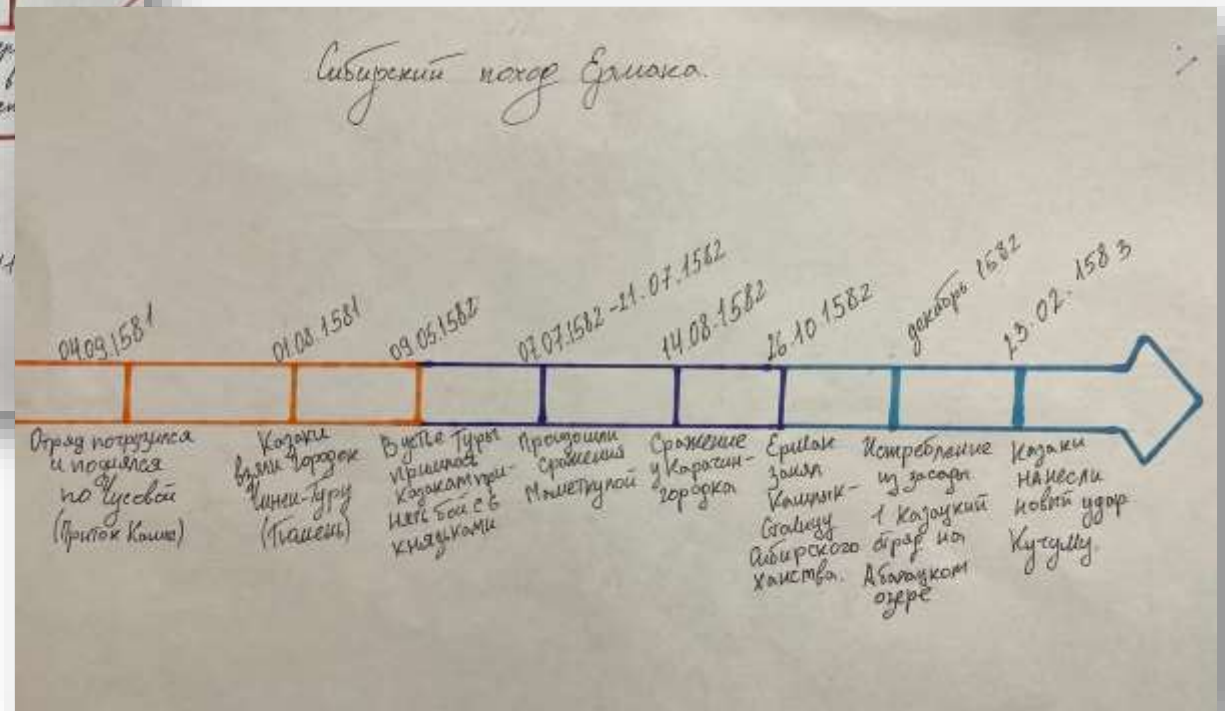 Сибирский поход Ермака.
04.09.1581
01.08.1581
09.05.1582
07.07.1582-21.07.1582
14.08.1582
26.10 1582
декабрь 1582
23.02.1583
Отряд погрузился
и поднялся
по Чусовой
(Приток Камы)
Казаки
взяли городок
Чинги-Туру
(Тюмень)
В устье Туры
пришлось
казакам при-
нять бой с 6
князьками
Произошли
сражения
Маметкулой
Сражение
у Карачин-
городка
Ермак
занял
Кашлык-
Столицу
Сибирского
ханства.
Истребление
из засады
1 казацкий
отряд на
Абалацком
озере
Казаки
нанесли
новый удар
Кучуму.